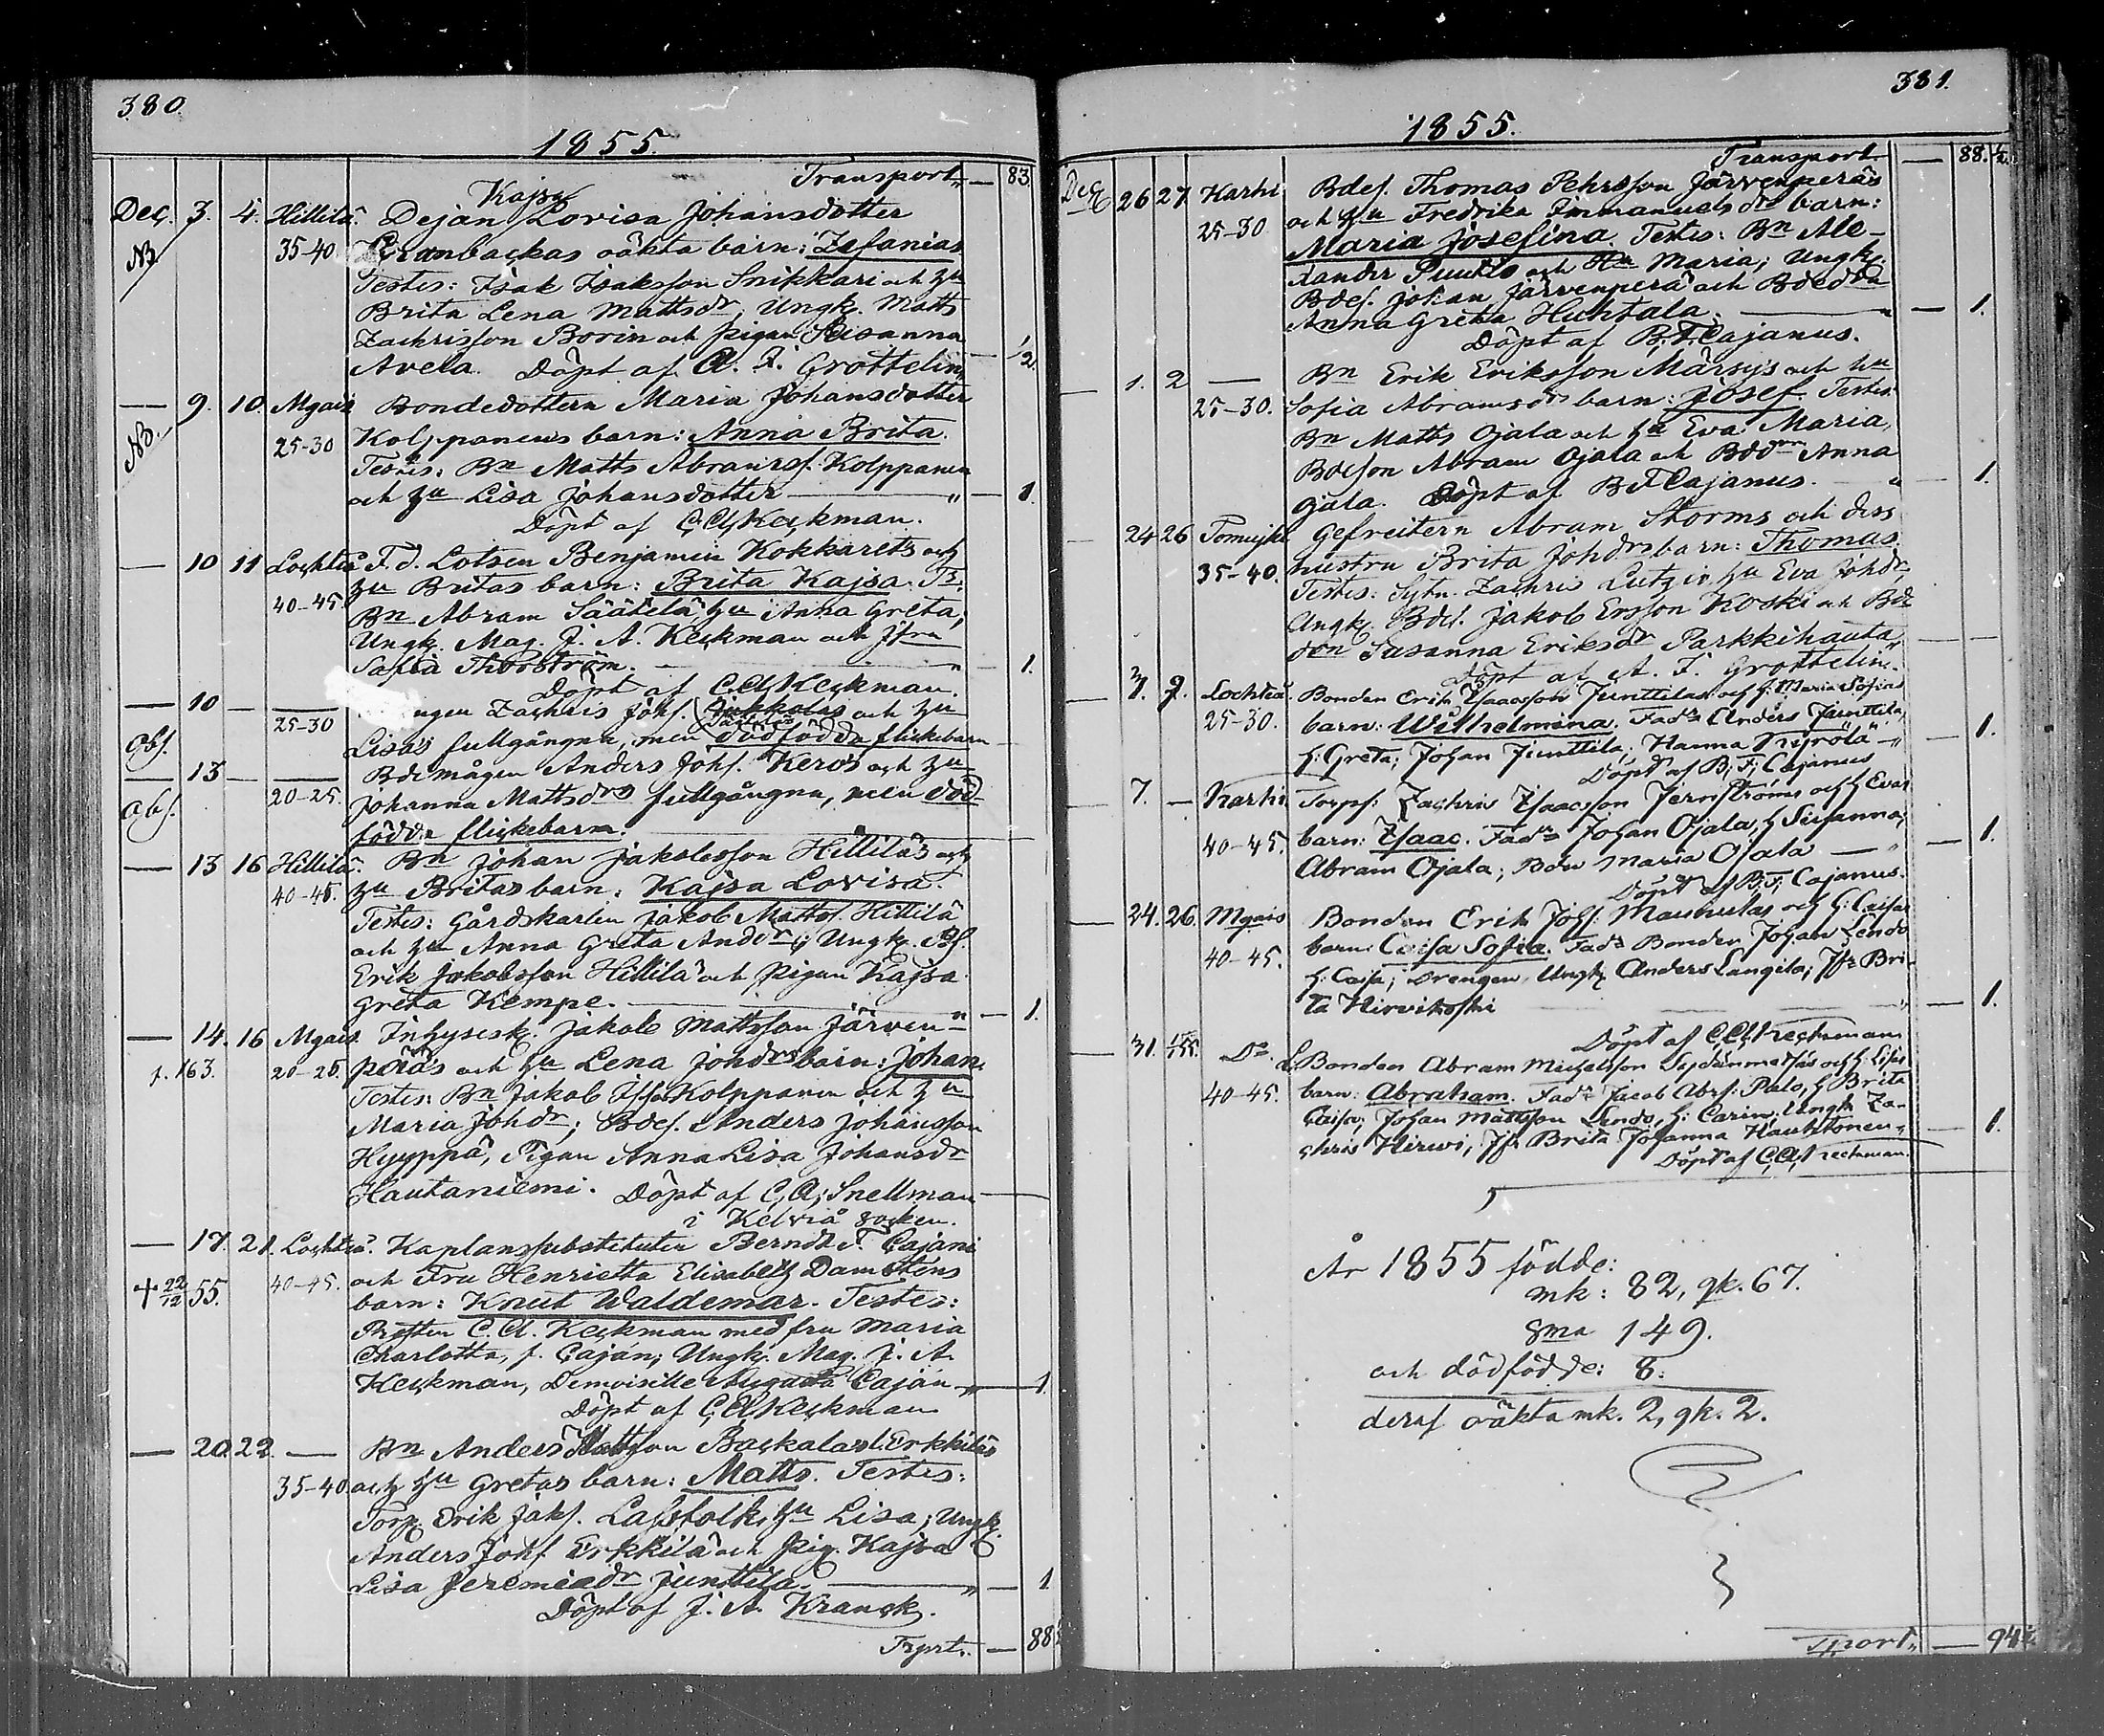 380.
1855.
Transport „ — 83.
Kajsa
Dec. 3. 4. Hillilä. Dejan Lovisa Johansdotter
NB. 35-40 backas oäkta barn: Zefanias
Testes: Isak Isaksson Snikkari och hu
Brita Lena Mattsdr, Ungk. Matts
Zachrisson Borin och pigan Susanna
Avela. Döpt af A. F. Grottelin „ — 1/2
— 9. 10. Mgais Bondedottern Maria Johansdotter
NB. 25-30 Kolppanens barn: Anna Brita.
Testes: Bn Matts Abramss. Kolppanen
och hu Lisa Johansdotter — „ — 1.
Döpt af C. A. Keckman.
— 10 11 Lochteå F. d. Lotsen Benjamin Kokkarets och
40-45 hu Britas barn: Brita Kajsa. Ts:
Bn Abram Säätelä, hu Anna Greta;
Ungk. Mag. J. A. Keckman och Jfru
Sofia Thorström. — „ — 1.
Döpt af C. A. Keckman.
— 10 — — Zachris Johs. Jukkolas och hu
Obs. 25-30 Lisas fullgångna, men dödfödda flickebarn
— 13 — — Bdemågen Anders Johs. Keros och hu
Obs. 20-25. Johanna Mattsdrs fullgångna, men död-
födda flickebarn.
— 13 16 Hillilä. Bn Johan Jakobsson Hilliläs och
40-45. hu Britas barn: Kajsa Lovisa.
Testes: Gårdskarlen Jakob Mattss. Hillilä
och hu Anna Greta Andersdr; Ungk. Bs.
Erik Jakobsson Hillilä och pigan Kajsa
Greta Kempe. — „ — 1.
— 14. 16 Mgais. Inhysesk. Jakob Mattsson Järven-
p. 163. 20-25. päräs och hu Lena Johdrs barn: Johan.
Testes: Bn Jakob Kolppanen och hu
Maria Johdr; Bdes. Anders Johansson
Hyyppä, Pigan Anna Lisa Johansdr
Hautaniemi. Döpt af C. A. Snellman —
i Kelviå socken.
— 17. 21. Lochteå. Kaplanssubstituten Berndt F. Cajani
+ 22/12 55. 40-45. och Fru Henrietta Elisabeth Damsténs
barn: Knut Waldemar. Testes:
Prosten C. A. Keckman med fru Maria
Charlotta, f. Caján; Ungk. Mag. J. A.
Keckman, Demoiselle Augusta Caján „ — 1.
Döpt af C. A. Keckman
— 20 22. — Bn Anders Mattsson Backala l. Erkkiläs
35-40. och hu Gretas barn: Matts. Testes:
Torp. Erik Jaks. Lassfolk, hu Lisa; Ungk.
Anders Johs Erkkilä och Pig. Kajsa
Lisa Jeremiædr Junttila. — „ — 1
Döpt af J. A. Kranck.
Trprt. — 88 1/2
381.
1855.
Transport — 88. 1/2.
Dec. 26 27. Karhi Bdes. Thomas Pehrsson Järvenperäs
25-30 och hu Fredrika Immanuelsdrs barn:
Maria Josefina. Testes: Bn Ale-
xander Puutio och Hu Maria; Ungk.
Bdes. Johan Järvenperä och Bdedn
Anna Greta Huhtala. — „ — 1.
Döpt af B. F. Cajanus.
— 1. 2 — Bn Erik Eriksson Märsys och hu
25-30. Sofia Abramsdrs barn: Josef. Testes:
Bn Matts Ojala och hu Eva Maria,
Bdeson Abram Ojala och Bddrn Anna
Ojala. Döpt af B. F. Cajanus. — „ — 1.
24 26 Gefreitern Abram Storms och dess
35-40. hustru Brita Johdrs barn: Thomas.
Testes: Sytn. Zachris Lutzin, hu Eva Johdr,
Ungk. Bdes. Jakob Ersson Koski och Bde
drn Susanna Eriksdr Parkkihauta „ —
Döpt af A. F. Grottelin.
— Lochteå. Bonden Erik Isaacsson Junttilas och h: Maria Sofias
25-30. barn: Wilhelmina. Fadr: Anders Junttila,
h: Greta; Johan Junttila; Hanna — „ — 1.
Döpt af B. F. Cajanus
— 7. — Karhi. Torps: Zachris Isaacsson Jernströms och h Evas
40-45. barn: Isaac. Fadr: Johan Ojala, h Susanna;
Abram Ojala; Bdn Maria Ojala — „ — 1.
Döpt af B. F. Cajanus.
— 24. 26. Mgais Bonden Erik Johs: Maunulas och h: Caisas
40-45. barn: Caisa Sofia. Fadr: Bonden Johan Lindo
h: Caisa; Drengen, Ungk Anders Langila; Jfr Bri-
ta Hirvikoski — „ — 1.
Döpt af C. A. Keckman
— 31. Do. Bonden Abram Michelsson Sydänmetsäs och h: Lisas
40-45. barn: Abraham. Fadr: Jacob Abrs: Palo, h Brita
Caisa; Johan Mattsson Lindo, h: Carin; Ungk Za-
chris Hirwi, Jfr Brita Johanna Hauhtonen „ — 1.
Döpt af C. A. Keckman.
År 1855 födde:
mk: 82, qk. 67.
Sma 149.
och dödfödde: 8.
deraf oäkta mk. 2, qk. 2.
Tport „ — 94 1/2